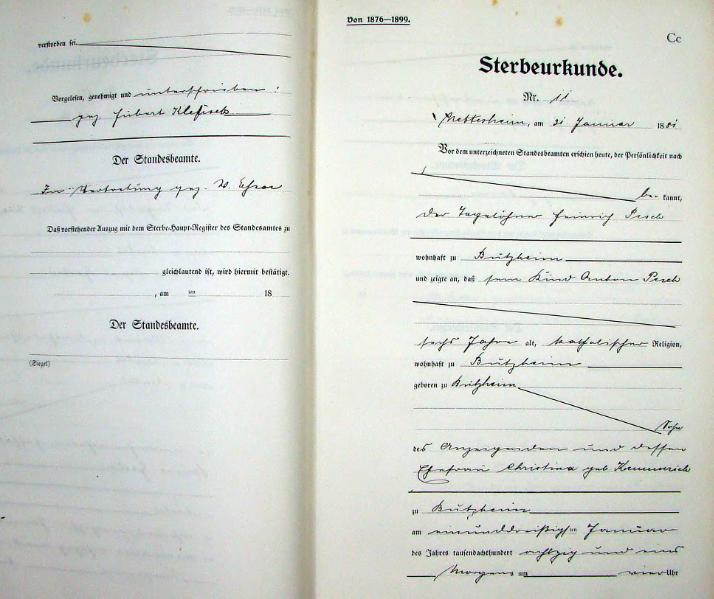 verstorben sei.
Vorgelesen, genehmigt und unterschrieben:
gez Hubert Klefisch
Der Standesbeamte.
In Vertretung gez. W.
Daß vorstehender Auszug mit dem Sterbe-Haupt-Register des Standesamtes zu
gleichlautend ist, wird hiermit bestätigt.
, am ten 18
Der Standesbeamte.
(Siegel)
Von 1876—1899.
Cc
Sterbeurkunde.
Nr. 11
Nettesheim, am 31 Januar 1881
Vor dem unterzeichneten Standesbeamten erschien heute, der Persönlichkeit nach
be kannt,
der Tagelöhner Heinrich Pesch
wohnhaft zu Butzheim
und zeigte an, daß sein Kind Anton Pesch
sechs Jahre alt, katholischer Religion,
wohnhaft zu Butzheim
geboren zu Butzheim
Sohn
des Anzeigenden und dessen
Ehefrau Christina geb Hemmerich
zu Butzheim
am einunddreißigsten Januar
des Jahres tausendachthundert achtzig und eins
Morgens um vier Uhr